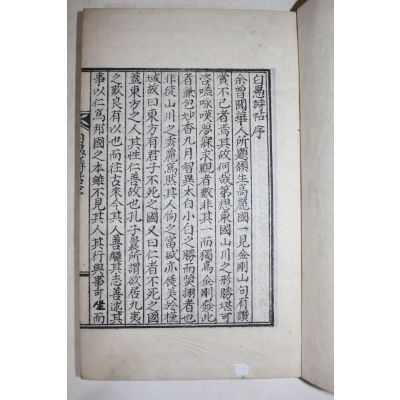 白愚詩帖序
余曾聞華人所題願生高麗國一見金剛山句有讚
賞不已者焉其故何哉第想東國山川之形勝堪可
咨嗟咏嘆夢寐求觀者數非其一而獨爲金剛發此
者兼包妙香九月智異太白小白之勝而獎詡者也
非徒山川之秀麗爲然其人物之富盛亦從美於
域故曰東方有君子不死之國又曰仁者不死之國
蓋東方之人其性仁善故也孔子曩所謂欲居九夷
之歎良有以也而往古來今其人善繼其志善述其
事以仁爲邦國之本雖不見其人其行與事可坐而